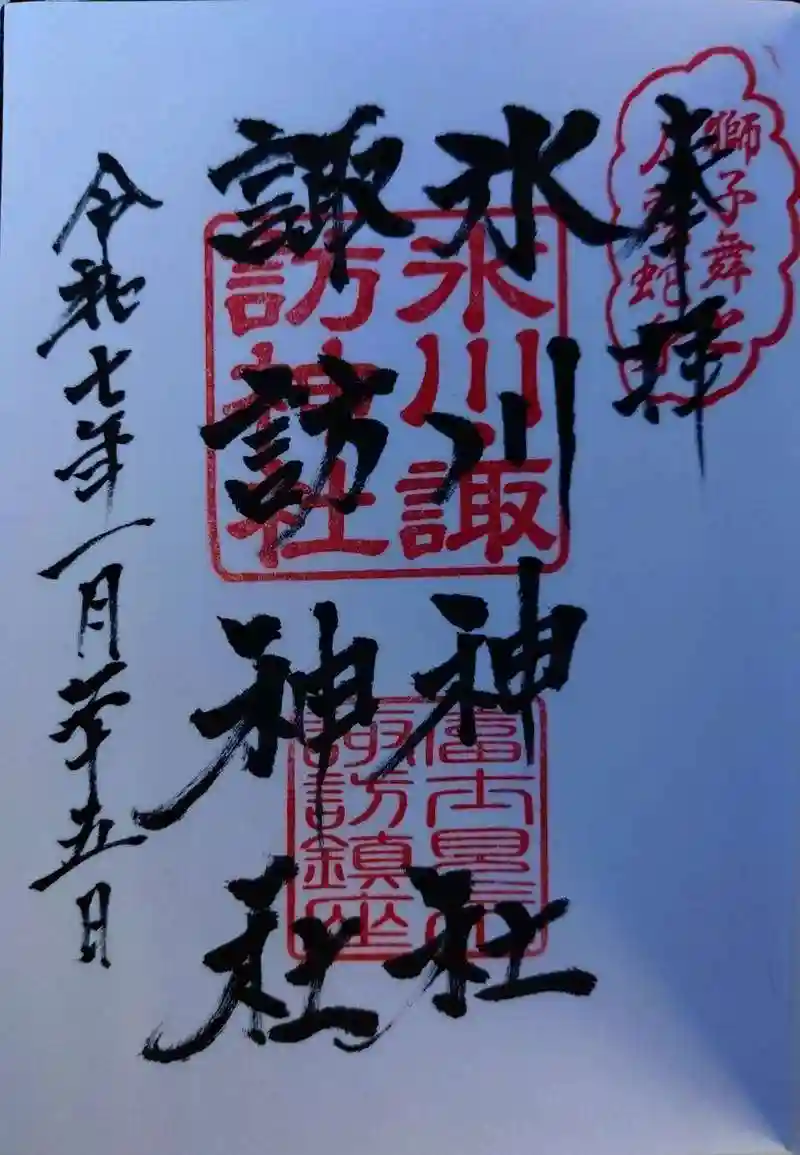 獅子舞
奉拝
氷川神社
諏訪神社
氷川諏
訪神社
富士見
諏訪鎮座
令和七年一月五日